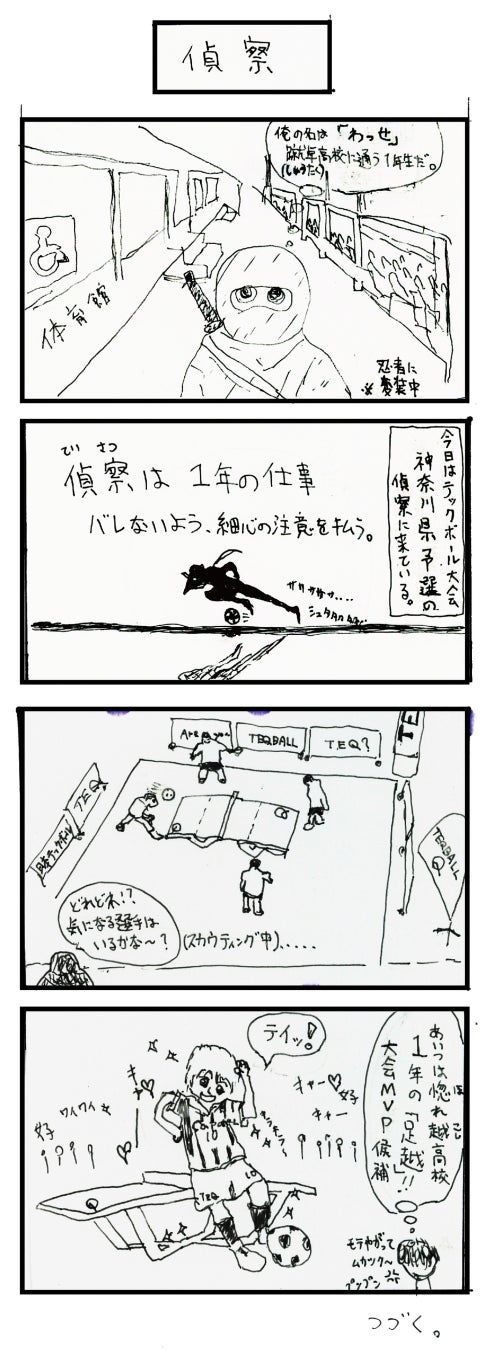 偵察
俺の名は「わっせ」
蹴卓高校に通う1年生だ。
(しゅうたく)
体育館
忍者に
※変装中
今日はテックボール大会
神奈川県予選の
偵察に来ている。
ていさつ
偵察は1年の仕事
バレないよう、細心の注意をキムう。
ササササッ‥‥
シュタタタタタ‥
Are you
TEQBALL
TEQ?
TE
TEQ
日本テックボール
TEQBALL
Q
どれどれ!?
気になる選手は
いるかな～?
(スカウティング中)、‥‥‥
あいつは惚れ越高校
ほ こし
1年の「足越」!!
大会MVP候補
テイッ!
キャー♡
ワイワイ
好
キャー♡好
キャー
キラキラ
TEQ
10
Q
モテやがって
ムカツク～
プンプン
つづく。